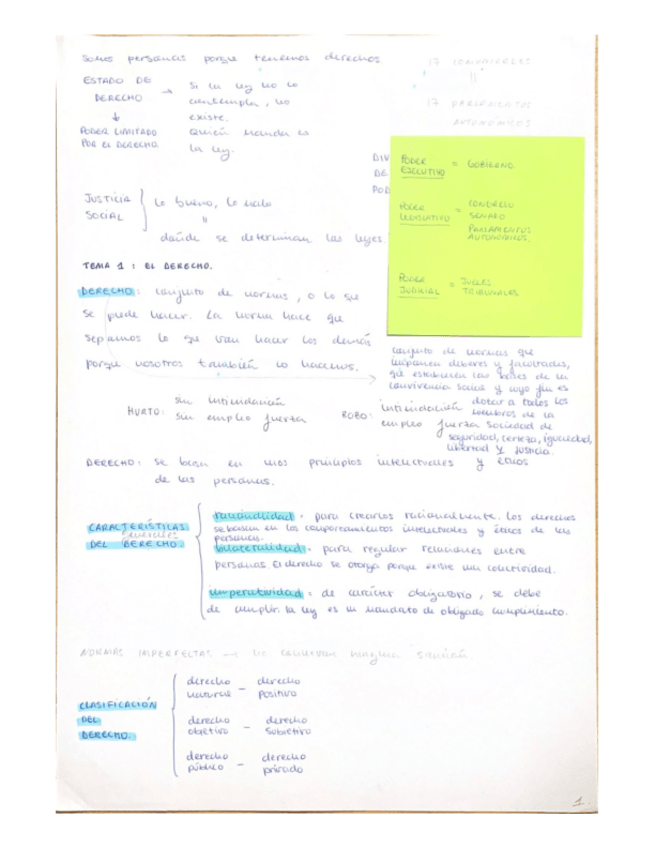 Somos personas porque tenemos derechos
ESTADO DE DERECHO → Si la ley no lo contempla, no existe.
Quién manda es la ley.
↓
PODER LIMITADO POR EL DERECHO.
17
||
17 PARLAMENTOS AUTONÓMICOS
DIV
DE
POD
PODER EJECUTIVO = GOBIERNO
PODER LEGISLATIVO = CONGRESO
SENADO
PARLAMENTOS AUTONÓMICOS.
PODER JUDICIAL = JUECES
TRIBUNALES
JUSTICIA SOCIAL { lo bueno, lo malo
"
donde se determinan las leyes.
TEMA 1 : EL DERECHO.
DERECHO: conjunto de normas, o lo que
se puede hacer. La norma hace que
sepamos lo que van hacer los demás
porque nosotros también lo hacemos.
conjunto de normas que
deberes y facultades,
que establecen las bases de la
convivencia social y cuyo fin es
dotar a todos los
miembros de la
sociedad de
seguridad, certeza, igualdad,
libertad y justicia.
HURTO: sin intimidación
sin empleo fuerza
ROBO: intimidación
empleo fuerza
DERECHO: se basa en unos principios intelectuales y éticos
de las personas.
CARACTERÍSTICAS generales DEL DERECHO
racionalidad = para crearlos racionalmente. Los derechos
se basan en los comportamientos intelectuales y éticos de las
personas.
bilateralidad = para regular relaciones entre
personas. El derecho se otorga porque existe una colectividad.
imperatividad = de carácter obligatorio, se debe
de cumplir. La ley es un mandato de obligado cumplimiento.
NORMAS IMPERFECTAS → no conllevan ninguna sanción
CLASIFICACIÓN DEL DERECHO.
derecho natural - derecho positivo
derecho objetivo - derecho subjetivo
derecho público - derecho privado
1